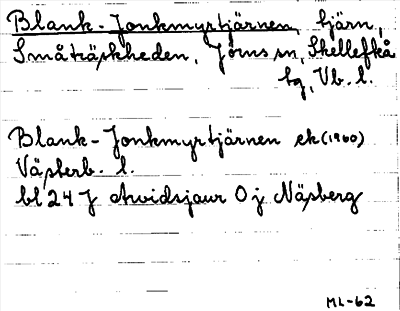 Blank-Jonkmyrtjärnen, tjärn,
Småträskheden, Jörns sn, Skellefteå
tg, Vb. l.
Blank-Jonkmyrtjärnen ek (1960)
Västerb. l.
bl 24 J Arvidsjaur 0 j Näsberg
ML-62